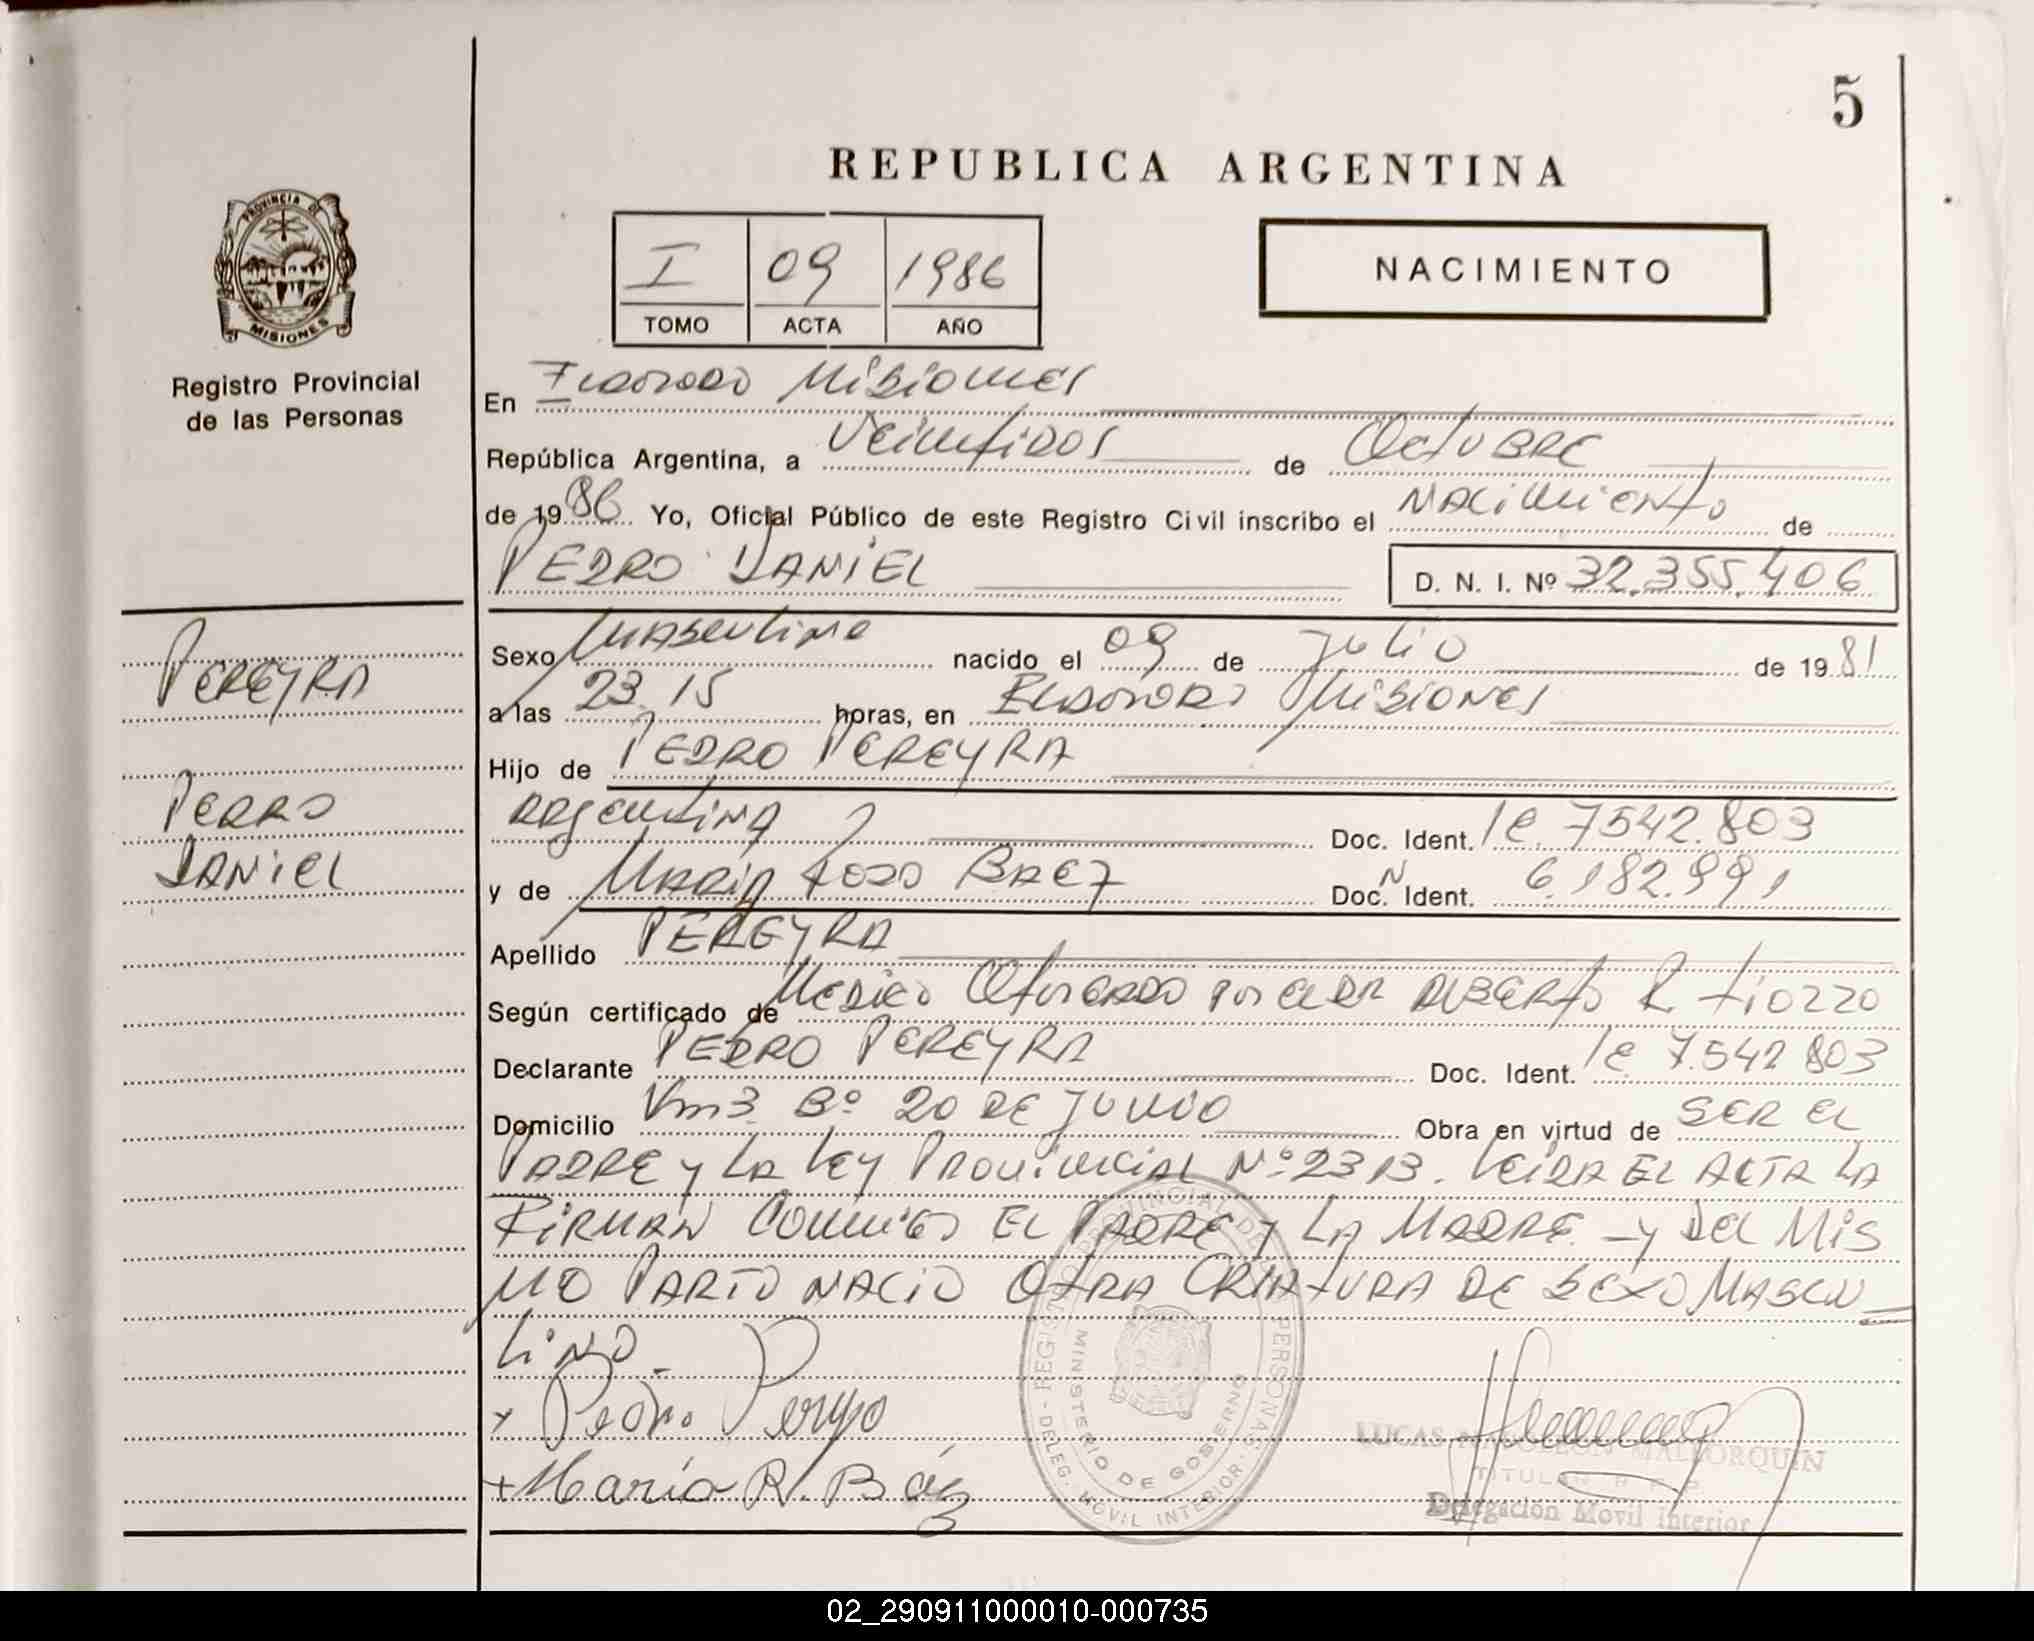 5
REPUBLICA ARGENTINA
PROVINCIA DE
MISIONES
Registro Provincial
de las Personas
I 09 1986
TOMO ACTA AÑO
NACIMIENTO
En Eldorado Misiones
República Argentina, a Veintidos de Octubre
de 1986 Yo, Oficial Público de este Registro Civil inscribo el Nacimiento de
PEDRO DANIEL D. N. I. Nº 32.355.406
Sexo Masculino nacido el 09 de Julio de 1981
a las 23.15 horas, en Eldorado Misiones
Hijo de PEDRO PEREYRA
Argentina Doc. Ident. le 7542.803
y de María Rosa BAEZ Doc. Ident. 6.182.991
Apellido PEREYRA
Según certificado de Medico Otorgado por el DR ALBERTO R Fiozzo
Declarante PEDRO PEREYRA Doc. Ident. le 7.542 803
Domicilio Km3 Bº 20 DE JUNIO Obra en virtud de SER EL
PADRE y LA LEY PROVINCIAL Nº 2313. LEIDA EL ACTA LA
FIRMAN CONMIGO EL PADRE y LA MADRE - y DEL MIS
MO PARTO NACIO OTRA CRIATURA DE SEXO MASCU
LINO
PEREYRA
PEDRO
DANIEL
x Pedro Pereyra
+ María R. Báez
REGISTRO PROVINCIAL DE LAS PERSONAS - DELEG. MOVIL INTERIOR
MINISTERIO DE GOBIERNO
LUCAS NAPOLEON MALLORQUIN
TITULAR
Delegación Movil Interior
02_290911000010-000735